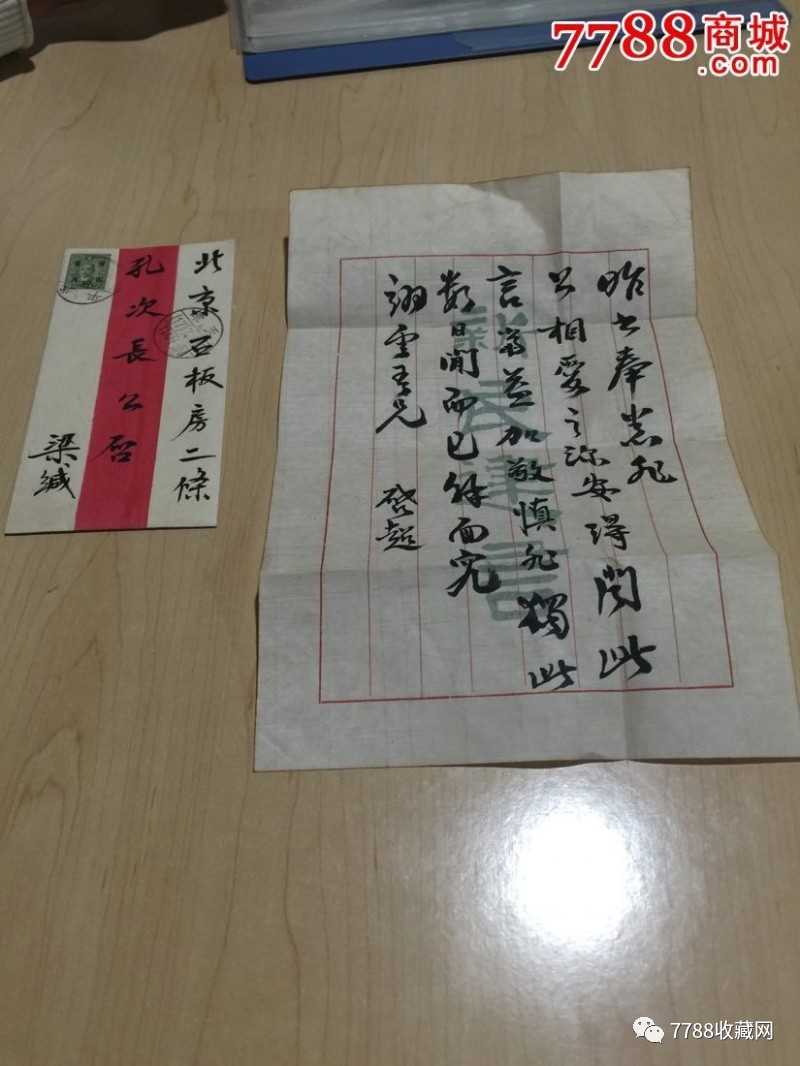 7788商城
.com
北京石板房二條
孔次長公啓
梁緘
昨书奉悉非
公相愛之深安得聞此
言翁益加敬慎非獨此
數日間而已餘面究
翊雲吾兄 啓超
7788收藏网